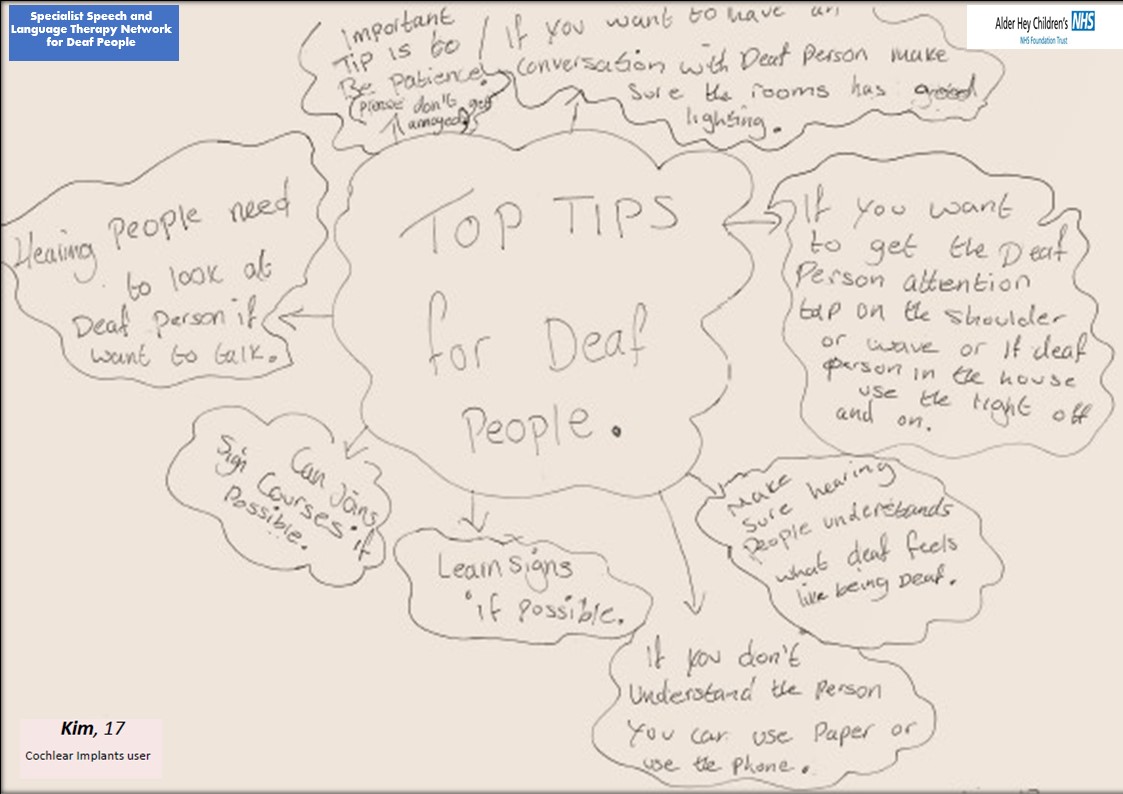 Specialist Speech and
Language Therapy Network
for Deaf People
Alder Hey Children's NHS
NHS Foundation Trust
Important
Tip is to
Be Patience!
(please don't get
annoyed)
If you want to have an
conversation with Deaf Person make
sure the rooms has good
lighting.
Hearing People need
to look at
Deaf person if
want to talk.
TOP TIPS
for Deaf
People.
If you want
to get the Deaf
Person attention
tap on the shoulder
or wave or if deaf
person in the house
use the light off
and on.
Can Joins
Sign Courses if
Possible.
Learn signs
if possible.
Make
sure hearing
People understands
what deaf feels
like being Deaf.
If you don't
Understand the Person
You can use Paper or
use the Phone.
Kim, 17
Cochlear Implants user